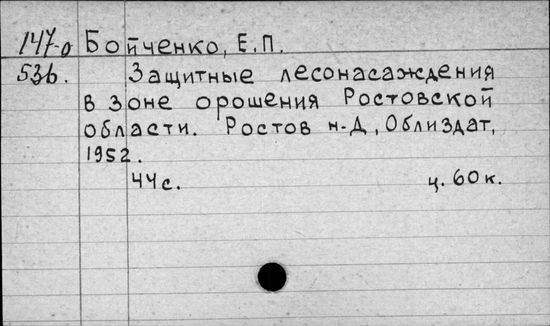 147-о Бойченко, Е.П.
536. Защитные лесонасаждения
в зоне орошения Ростовской
области. Ростов н-Д, Облиздат,
1952.
44с. ц. 60к.